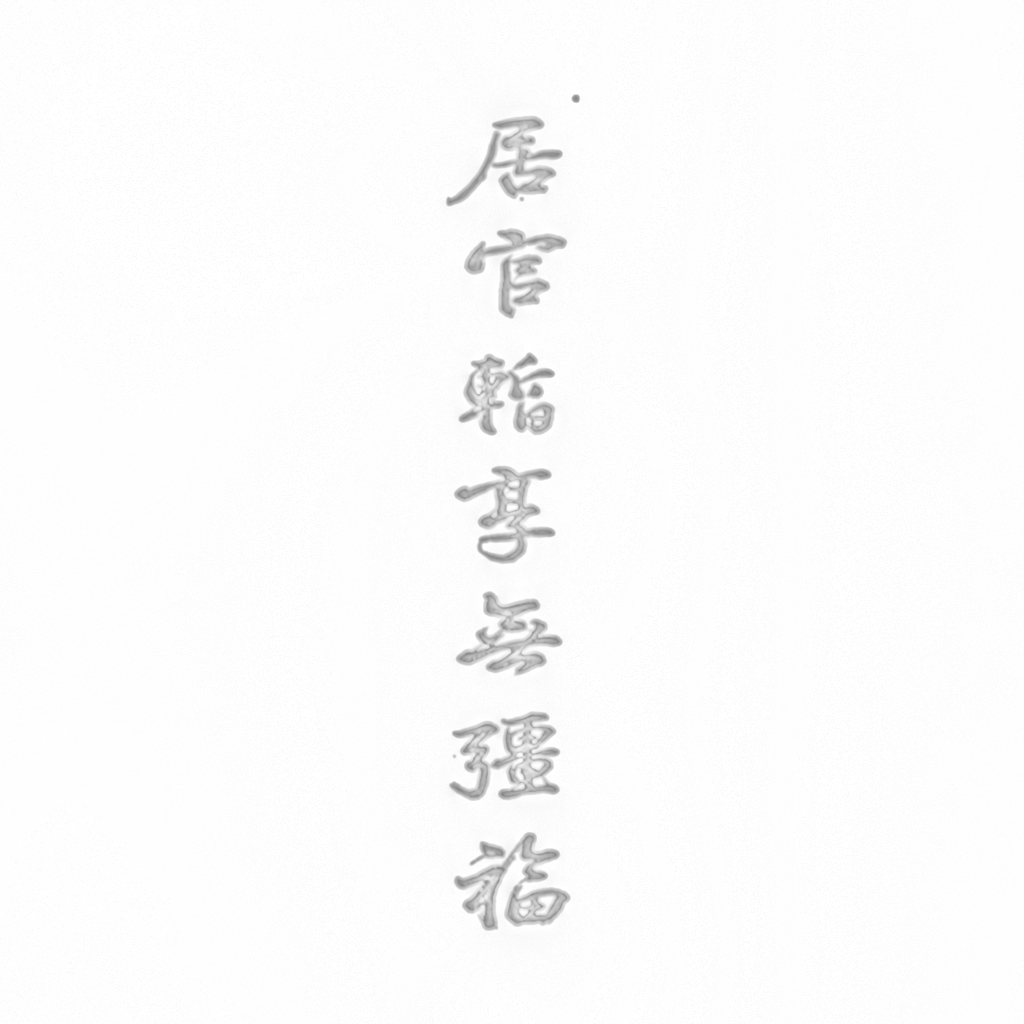 居官韜享無疆福